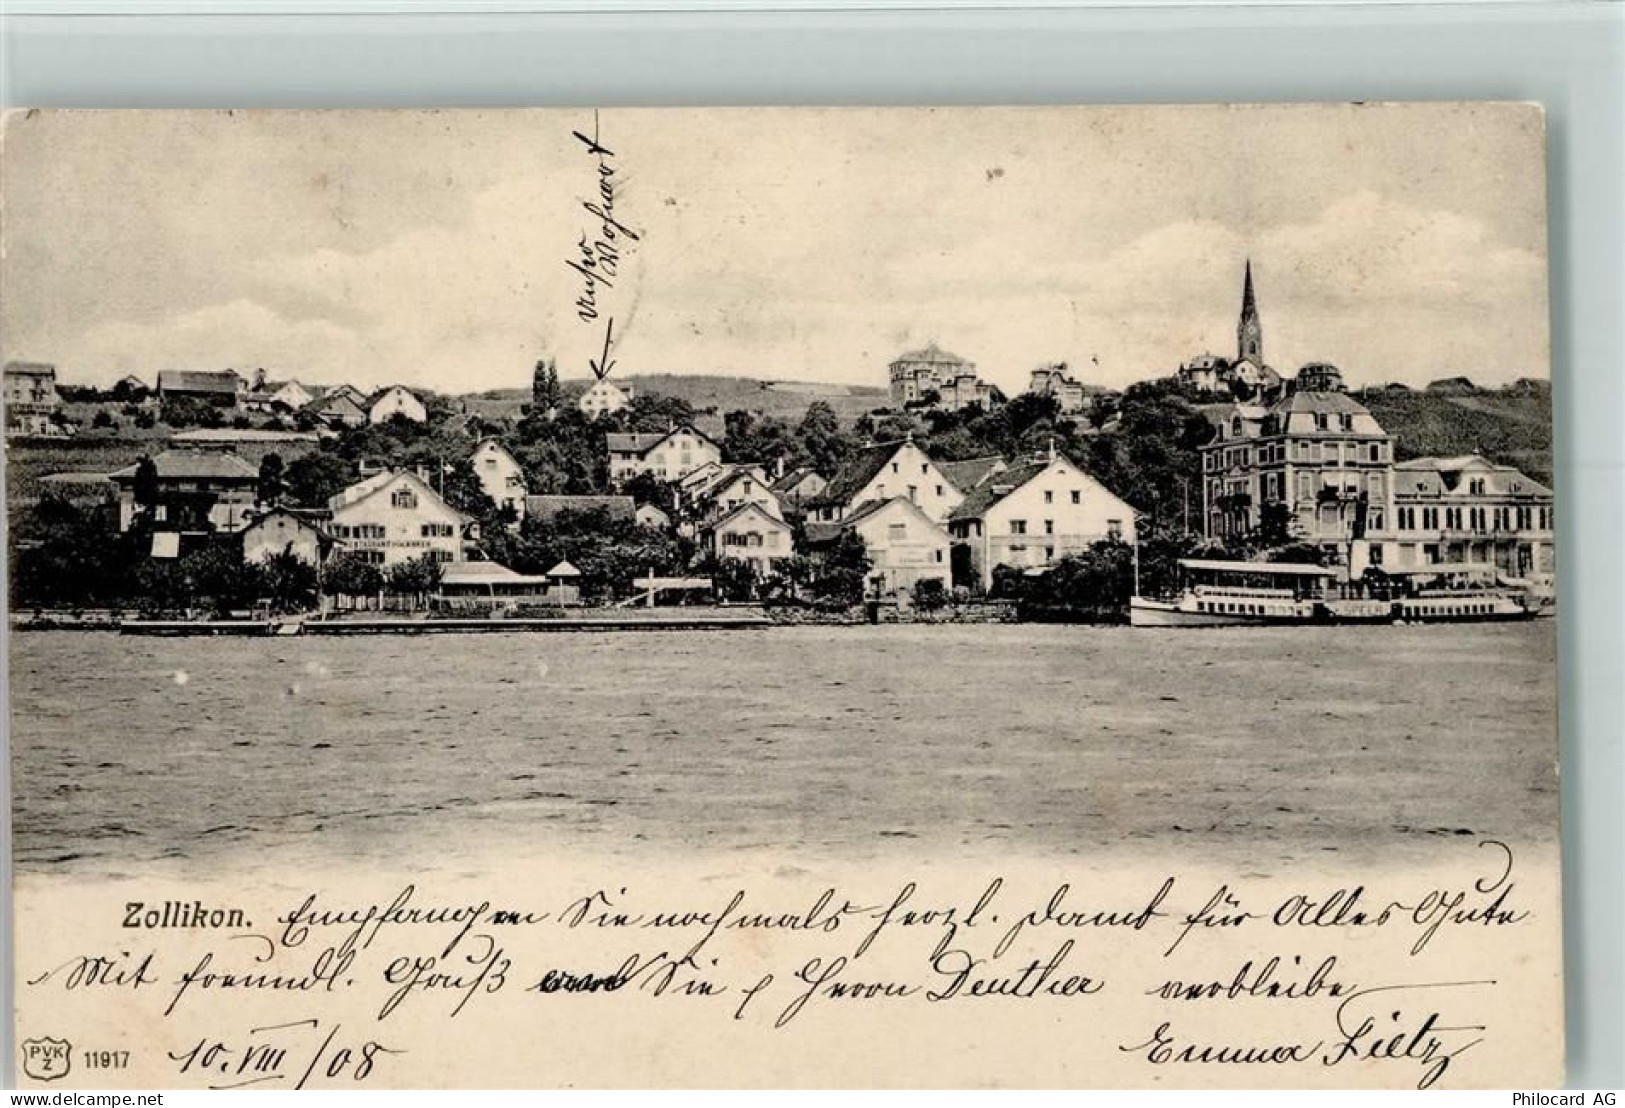 unsre
Wohnort
RESTAURANT
SPEER
Zollikon. Empfangen Sie nochmals herzl. Dank für Alles Gute
Mit freundl. Gruß an Sie & Herrn Deuther verbleibe
Emma Fietz
PVK
Z
11917 10. VIII /08
delcampe.net
Philocard AG